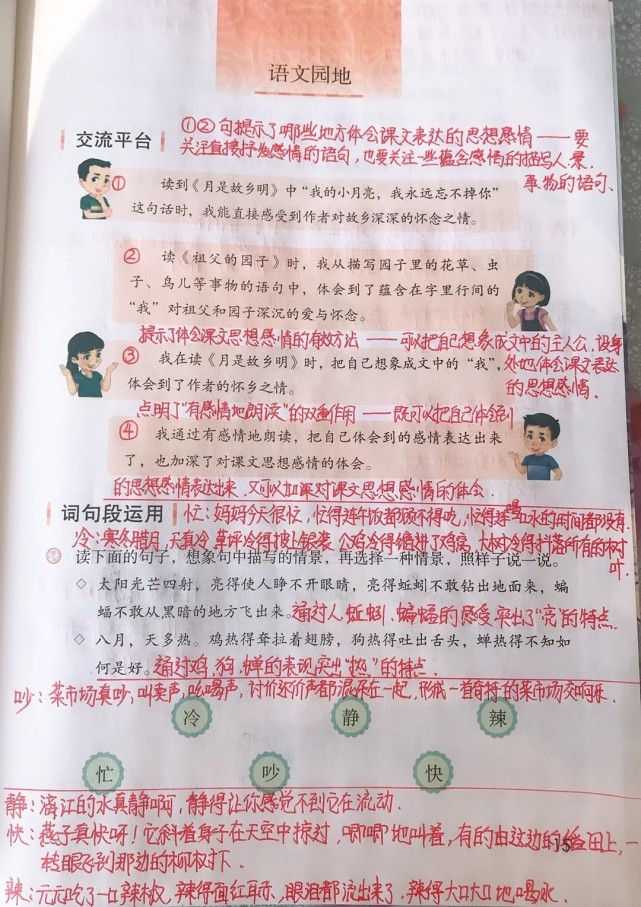 语文园地
交流平台
①②句提示了哪些地方体会课文表达的思想感情——要
关注直接抒发感情的语句,也要关注一些蕴含感情的描写人、景、
事、物的语句、
① 读到《月是故乡明》中“我的小月亮,我永远忘不掉你”
这句话时,我能直接感受到作者对故乡深深的怀念之情。
② 读《祖父的园子》时,我从描写园子里的花草、虫
子、鸟儿等事物的语句中,体会到了蕴含在字里行间的
“我”对祖父和园子深沉的爱与怀念。
提示了体会课文思想感情的有效方法——可以把自己想象成文中的主人公,设身
处地体会课文表达
的思想感情.
③ 我在读《月是故乡明》时,把自己想象成文中的“我”,
体会到了作者的怀乡之情。
点明了“有感情地朗读”的双重作用——既可以把自己体会到
④ 我通过有感情地朗读,把自己体会到的感情表达出来
了,也加深了对课文思想感情的体会。
的思想感情表达出来,又可以加深对课文思想感情的体会.
词句段运用
忙:妈妈今天很忙,忙得连午饭都顾不得吃,忙得连喝口水的时间都没有.
冷:寒冬腊月,天真冷,草坪冷得披上银装,公鸡冷得缩进了鸡窝,大树冷得抖落所有的树
叶.
读下面的句子,想象句中描写的情景,再选择一种情景,照样子说一说。
◇ 太阳光芒四射,亮得使人睁不开眼睛,亮得蚯蚓不敢钻出地面来,蝙
蝠不敢从黑暗的地方飞出来。通过人、蚯蚓、蝙蝠的感受突出了“亮”的特点.
◇ 八月,天多热。鸡热得耷拉着翅膀,狗热得吐出舌头,蝉热得不知如
何是好。通过鸡、狗、蝉的表现突出“热”的特点.
吵:菜市场真吵,叫卖声,吆喝声,讨价还价声都混杂在一起,形成一首奇特的菜市场交响乐.
冷 静 辣
忙 吵 快
静:漓江的水真静啊,静得让你感觉不到它在流动.
快:燕子真快呀!它斜着身子在天空中掠过,唧唧地叫着,有的由这边的稻田上,一
15
转眼飞到那边的柳树下.
辣:元元吃了一口辣椒,辣得面红耳赤,眼泪都流出来了,辣得大口大口地喝水.